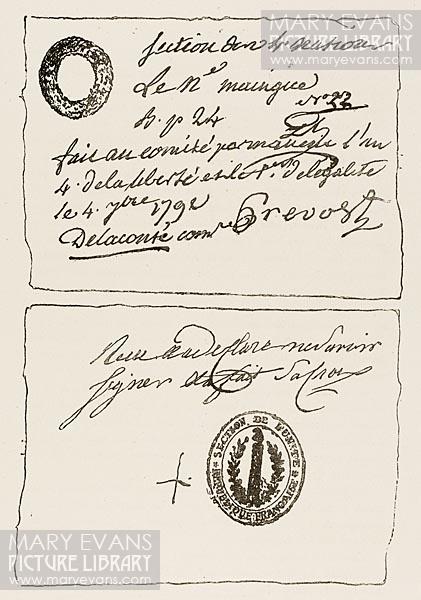 MARY EVANS
PICTURE LIBRARY
www.maryevans.com
Section des 4 nations
Le Né mainque
No 22
B. p 24
fait au comité permanent l'an
4. de la liberté et le 1er d'elégalité
le 4. 7bre 1792
Delaconté comre Prevost
declare ne savoir
signer et a fait sa croix
SECTION DE
REPUBLIQUE FRANCAISE
MARY EVANS
PICTURE LIBRARY
www.maryevans.com